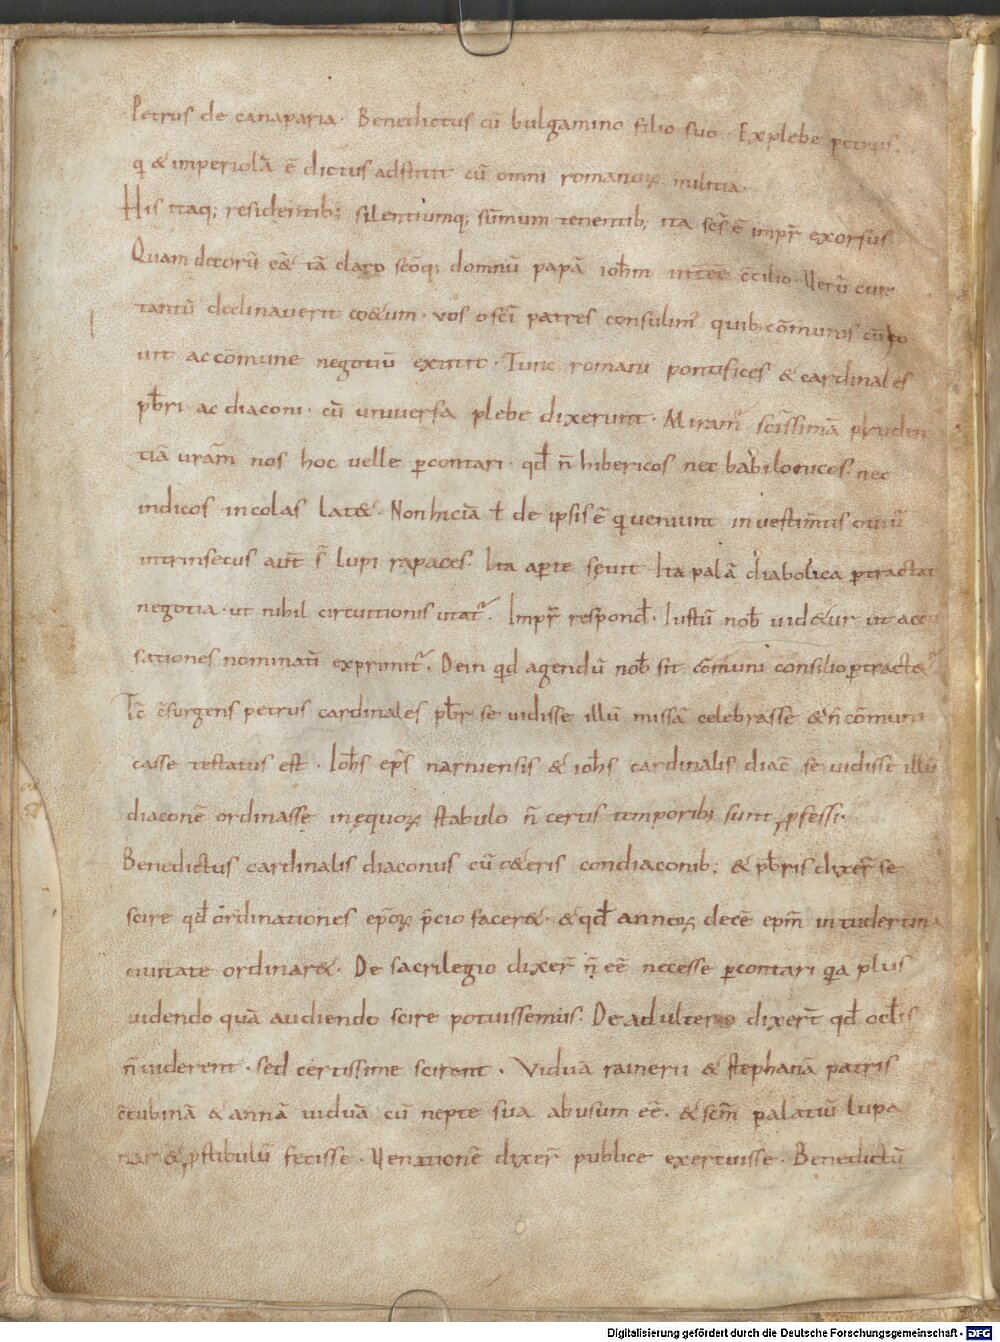 Petrus de canaparia · Benedictus cū bulgamino filio suo · Explebe petrus.
q & imperiolā ē dictus adstitit cū omni romanorꝝ militia.
His itaq; residentib; silentiumq; sūmum tenentib; ita scs̄ ē impr̄ exorsus
Quam decorū eē& tā claro scōq; domnū papā ioh̄m int̄ee c̄cilio · Verū cur
tantū declinaverit co&um · vos o scī patres consulim᾽ quib; cōmunis cū eo
vit ac cōmune negotiū extitit · Tunc romani pontifices & cardinales
pb̄ri ac diaconi · cū universa plebe dixerunt · Miram᾽ scīssimā pruden
tiā vrām nos hoc velle ꝑcontari · qd̄ n̄ hibericos nec babilonicos. nec
indicos incolas lat& · Non hic iā ł de ipsis ē qui veniunt in vestim̄tis oviū
intrinsecus aut̄ s̄ lupi rapaces. Ita aperte sęvit Ita palā diabolica ꝑtractat
negotia · ut nihil circuitionis utat᷑. Impr̄ respond̄ · Iustū nob̄ vid&ur ut accu
sationes nominati exprimit᷑. Dein qd agendū nob̄ sit cōmuni consilio ꝑtract&᷑
Tc̄ c̄surgens petrus cardinales pb̄r se vidisse illū missā celebrasse & n̄ cōmuni
casse testatus est · Ioh̄s ep̄s narniensis & ioh̄s cardinalis diac̄ se vidisse illū
diaconē ordinasse in ęquorꝝ stabulo n̄ certis temporib; sunt ꝓfessi.
Benedictus cardinalis diaconus cū c&eris condiaconib; & pb̄ris dixer̄ se
scire qd̄ ordinationes ep̄orꝝ p̄cio facer& · & qd̄ annorꝝ decē ep̄m in tudertina
civitate ordinar& · De sacrilegio dixer̄ n̄ eē necesse ꝑcontari qa plus
videndo quā audiendo scire potuissemus. De adulterio dixer̄t qd̄ oc̄lis
n̄ viderent · sed certissime scirent · Viduā rainerii & stephanā patris
c̄cubinā & annā viduā cū nepte sua abusum eē · & scm̄ palatiū lupa
nar & ꝓstibulū fecisse · Venationē dixer̄ publice exercuisse · Benedictū
Digitalisierung gefördert durch die Deutsche Forschungsgemeinschaft - DFG